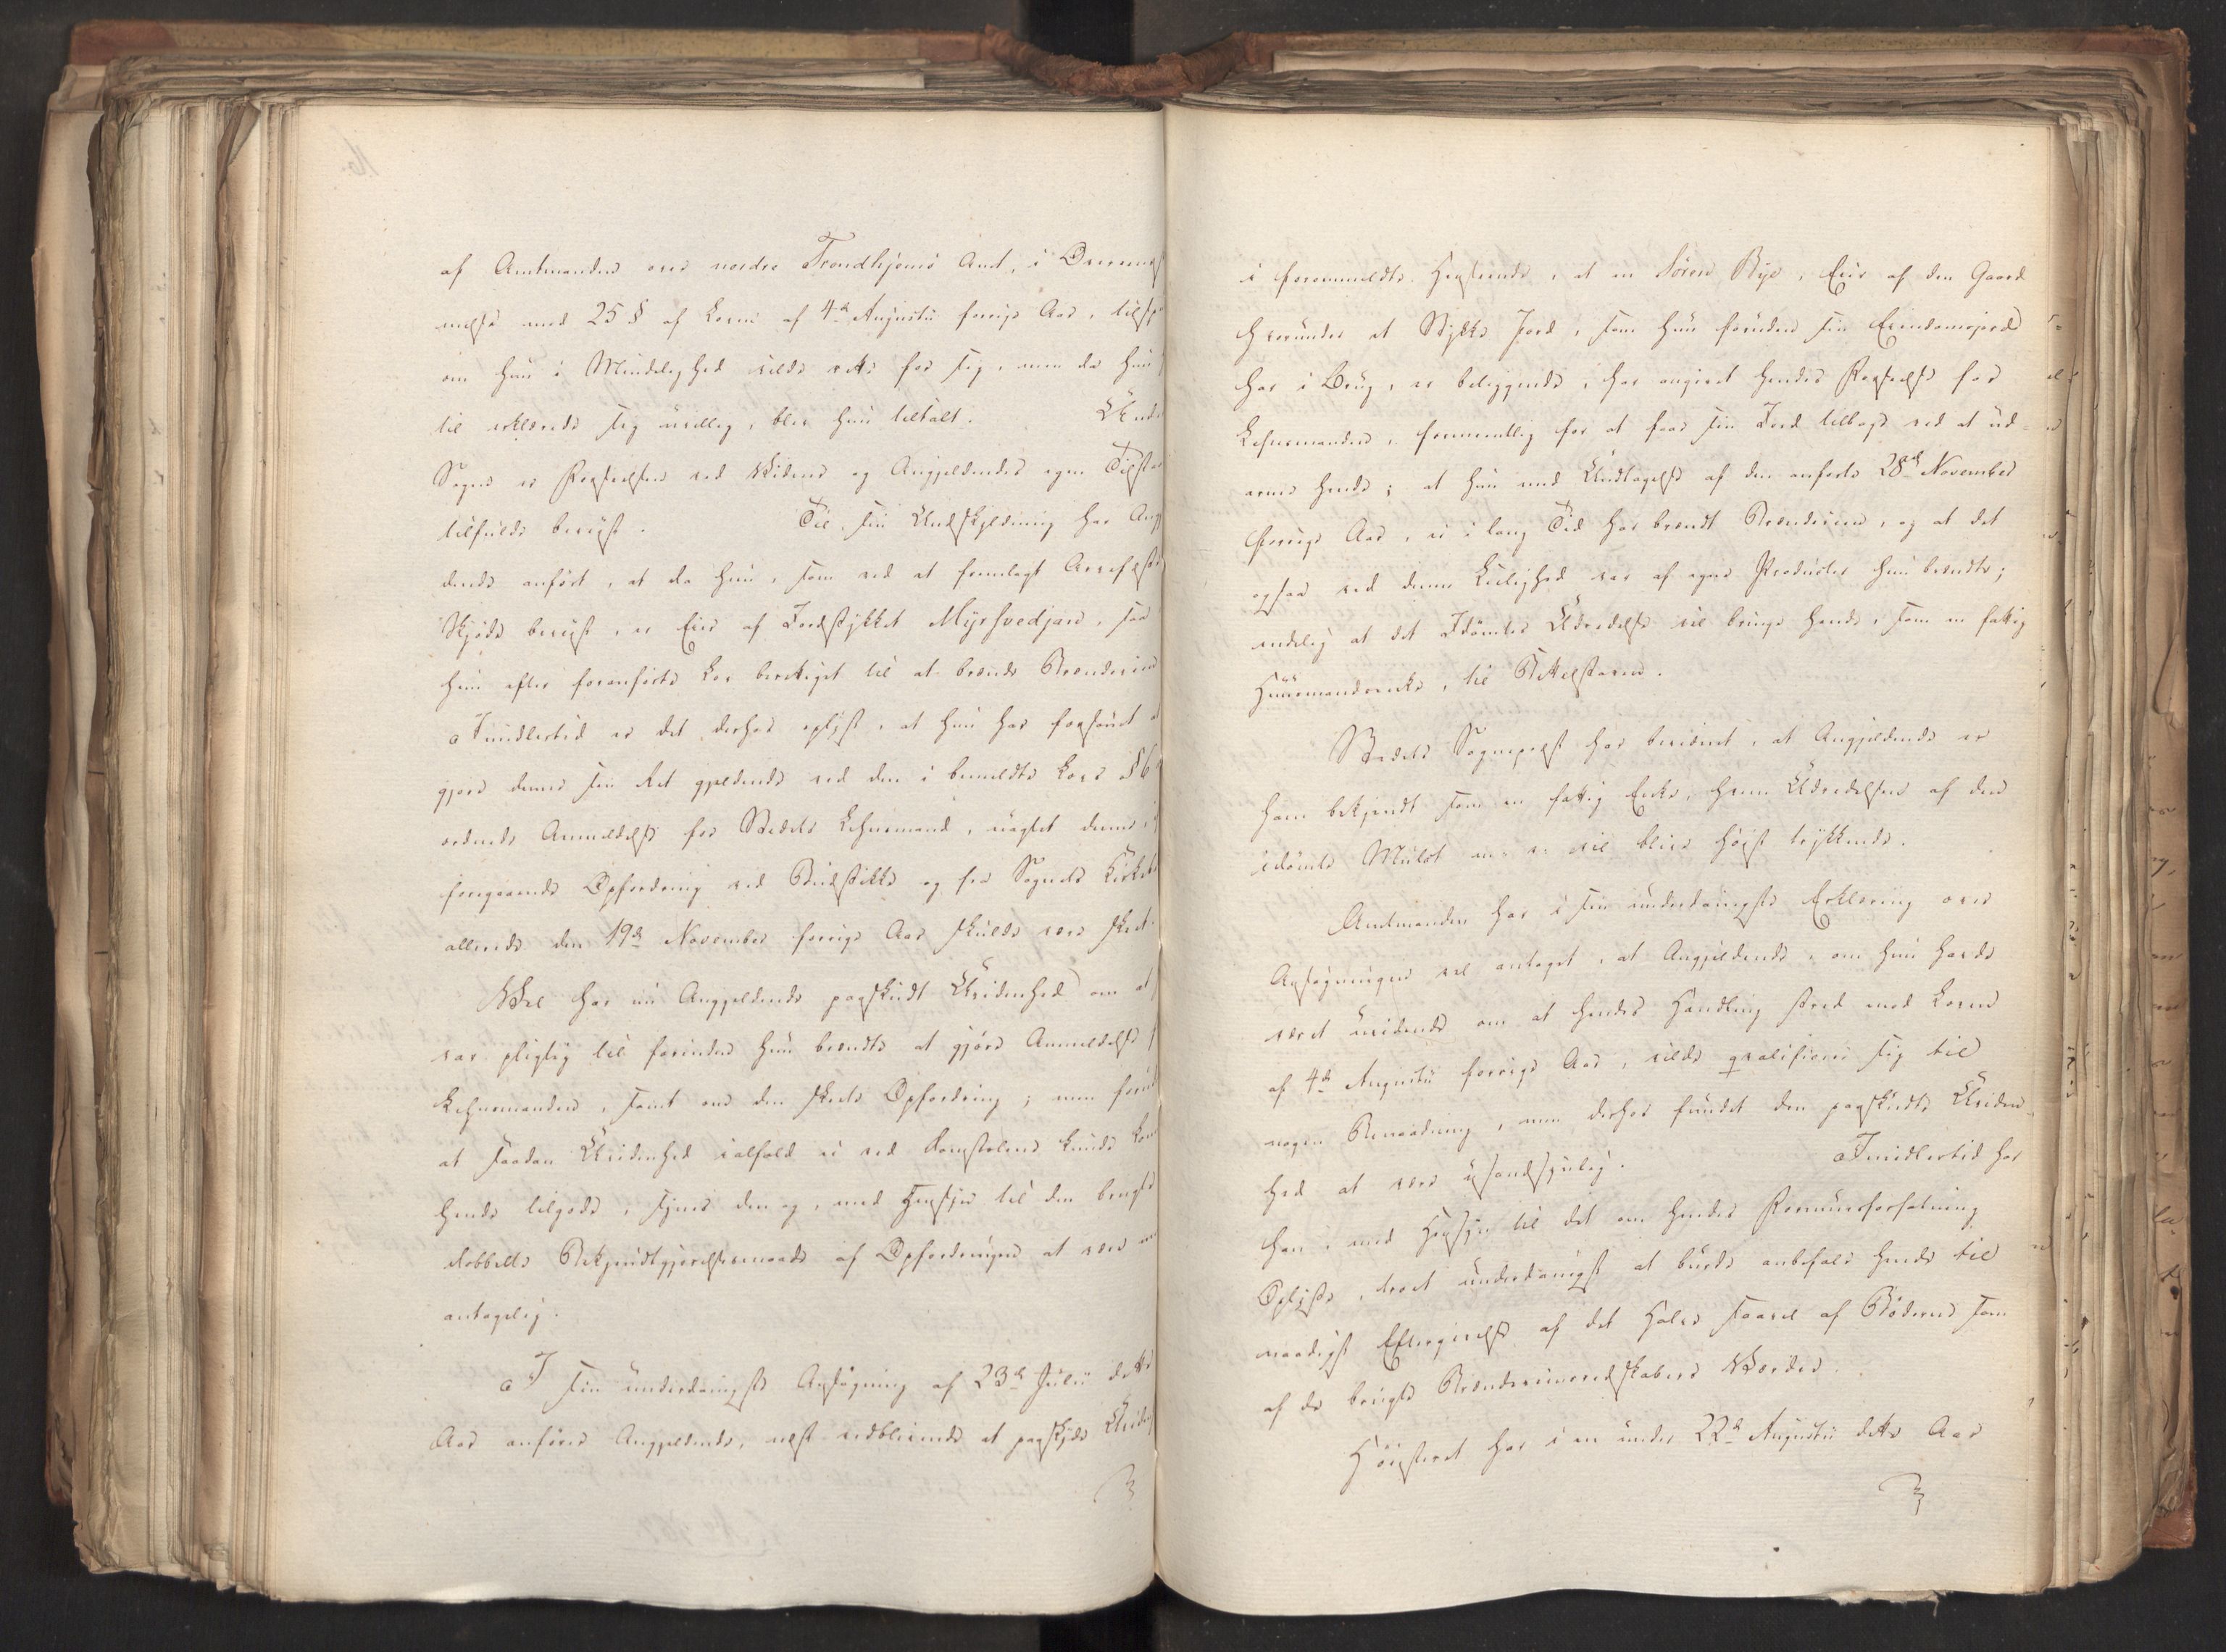 af Amtmanden over nordre Trondhjems Amt, i Overeens
melse med 25 § af Loven af 4de Augusti forrige Aar, tilsp
om hun i Mindelighed vilde vedtage for sig, men da hun
til erklærede sig uvillig, blev hun tiltalt. Under
Sagen er Forseelsen ved Vidner og Angjeldendes egen Tilstaa
tilfulde beviist. Til sin Undskyldning har Angj
dende anført, at da hun, som ved et fremlagt
Skjøde beviist, er Eier af Jordstykket Myrsvedjan, saa
hun efter foranførte Lov berettiget til at brænde Brændeviin
Imidlertid er det derhos oplyst, at hun har forsømt at
gjøre denne sin Ret gjeldende ved den i bemeldte Lovs § 6
ordnede Anmeldelse for Stedets Lehnsmand, uagtet denne,
foregaaende Opfordring ved Budstikke og fra Sognets Kirke
allerede den 19de November forrige Aar skulde være skeet.
Vel har nu Angjeldende paaskudt Uvidenhed om at
var pligtig til forinden hun brændte at gjøre Anmeldelse
Lehnsmanden, samt om den skeete Opfordring; men foruden
at saadan Uvidenhed ialfald ei ved Domstolene kunde kom
hende tilgode, synes den og, med Hensyn til den brugte
dobbelte Bekjendtgjørelsesmaade af Opfordringen at være
antagelig.
I sin underdanigste Ansøgning af 23de Julii dette
Aar anfører Angjeldende, næst vedblivende at paaskyde Uviden
i forommeldte Henseende, at en Sören Rye, Eier af den Gaard
hvorunder et Stykke Jord, som hun foruden sin Eiendomsjord
har i Brug, er beliggende, har angivet hendes Forseelse for
Lehnsmanden, formeentlig for at faae sin Jord tilbage ved at ud-
arme hende; at hun med Undtagelse af den anførte 28de November
forrige Aar, ei i lang Tid har brændt Brændeviin, og at det
ogsaa ved denne Leilighed var af egne Producter hun brændte;
endelig at det Idømtes Udredelse vil bringe hende, som en fattig
Huusmandsenke, til Bettelstaven.
Stedets Sognepræst har bevidnet, at Angjeldende er
ham bekjendt som en fattig Enke, hvem Udredelsen af den
idømte Mulct m: v: vil blive høist trykkende.
Amtmanden har i sin underdanigste Erklæring over
Ansøgningen vel antaget, at Angjeldende, om hun havde
været uvidende om at hendes Handling stred mod Loven
af 4de Augusti forrige Aar, vilde qvalificere sig til
nogen Benaadning, men derhos fundet den paaskudte Uviden-
hed at være usandsynlig. Imidlertid har
han, med Hensyn til det om hendes Formuesforfatning
Oplyste, troet underdanigst at burde anbefale hende til
naadigst Eftergivelse af det Halve saavel af Bøderne som
af de brugte Brændeviinsredskabers Værdie.
Höiesteret har i en under 22de Augusti dette Aar